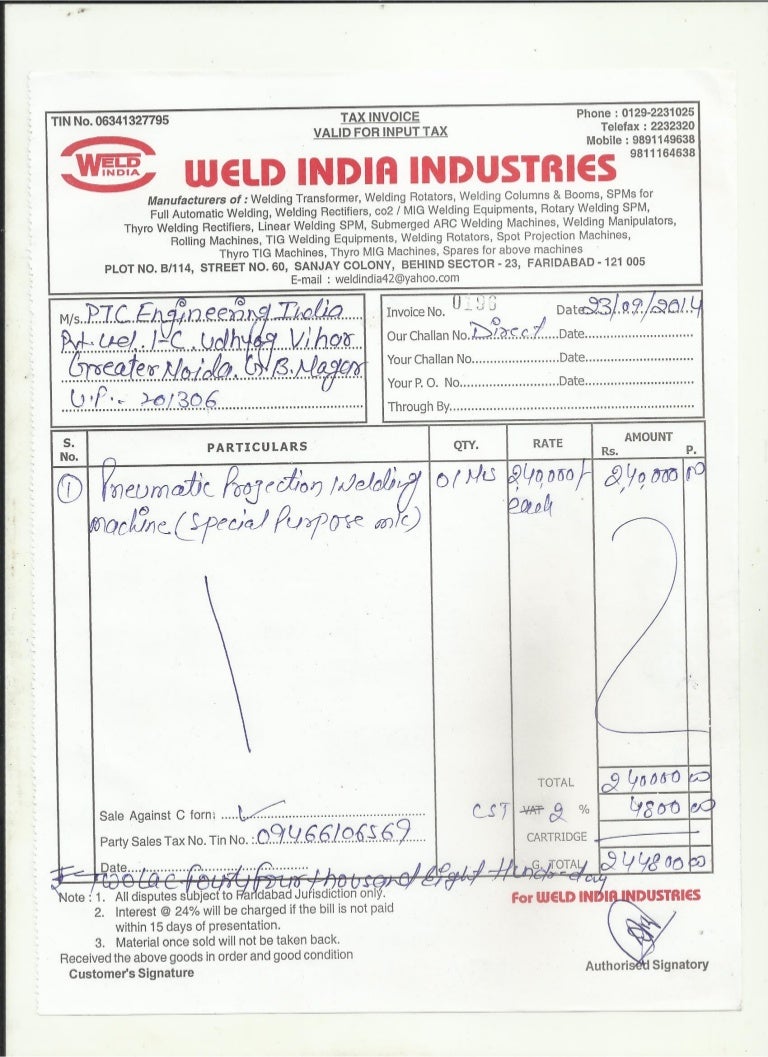 TIN No. 06341327795
TAX INVOICE
VALID FOR INPUT TAX
Phone : 0129-2231025
Telefax : 2232320
Mobile : 9891149638
9811164638
WELD
INDIA
WELD INDIA INDUSTRIES
Manufacturers of : Welding Transformer, Welding Rotators, Welding Columns & Booms, SPMs for
Full Automatic Welding, Welding Rectifiers, co2 / MIG Welding Equipments, Rotary Welding SPM,
Thyro Welding Rectifiers, Linear Welding SPM, Submerged ARC Welding Machines, Welding Manipulators,
Rolling Machines, TIG Welding Equipments, Welding Rotators, Spot Projection Machines,
Thyro TIG Machines, Thyro MIG Machines, Spares for above machines
PLOT NO. B/114, STREET NO. 60, SANJAY COLONY, BEHIND SECTOR - 23, FARIDABAD - 121 005
E-mail : weldindia42@yahoo.com
M/s. PTC Engineering India
Pvt. Ltd. I-C, Udhyog Vihar
Greater Noida. G. B. Nagar
U.P.- 201306
Invoice No. 0196 Date 23/09/2014
Our Challan No. Direct Date
Your Challan No. Date
Your P. O. No. Date
Through By
S. No. PARTICULARS QTY. RATE AMOUNT
Rs. P.
1 Pneumatic Projection Welding 01 240,000/- 2,40,000 00
machine (Special Purpose m/c) each
TOTAL 240000 00
Sale Against C form : ✓ CST VAT 2 % 4800 00
Party Sales Tax No. Tin No. : 09466106569 CARTRIDGE
Date G. TOTAL 244800 00
Two Lac fourty four thousand Eight
Note : 1. All disputes subject to Faridabad Jurisdiction only.
2. Interest @ 24% will be charged if the bill is not paid
within 15 days of presentation.
3. Material once sold will not be taken back.
Received the above goods in order and good condition
Customer's Signature
For WELD INDIA INDUSTRIES
Authorised Signatory